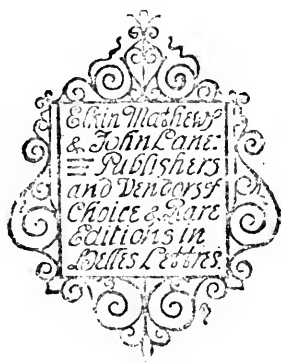 Elkin Mathews
& John Lane:
Publishers
and Vendors of
Choice & Rare
Editions in
Belles Lettres